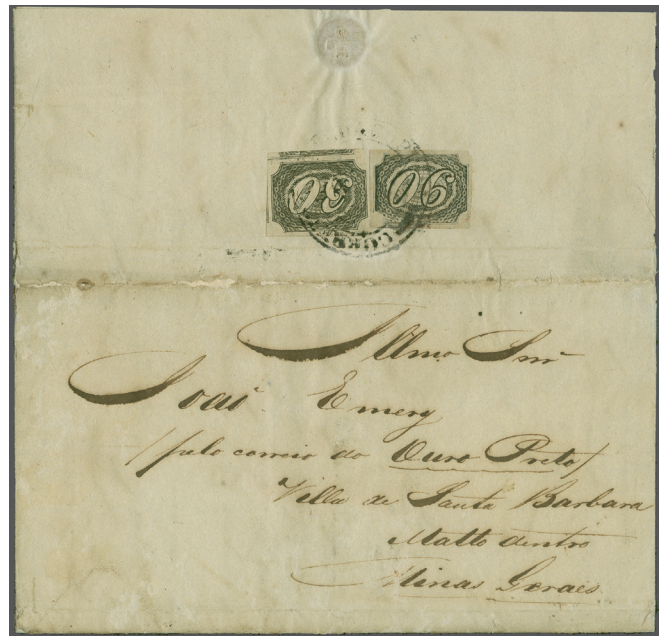 Illmo Snr
Joaõ Emery
(pelo correio do Ouro Preto)
Villa de Santa Barbara
Matto dentro
Minas Geraes